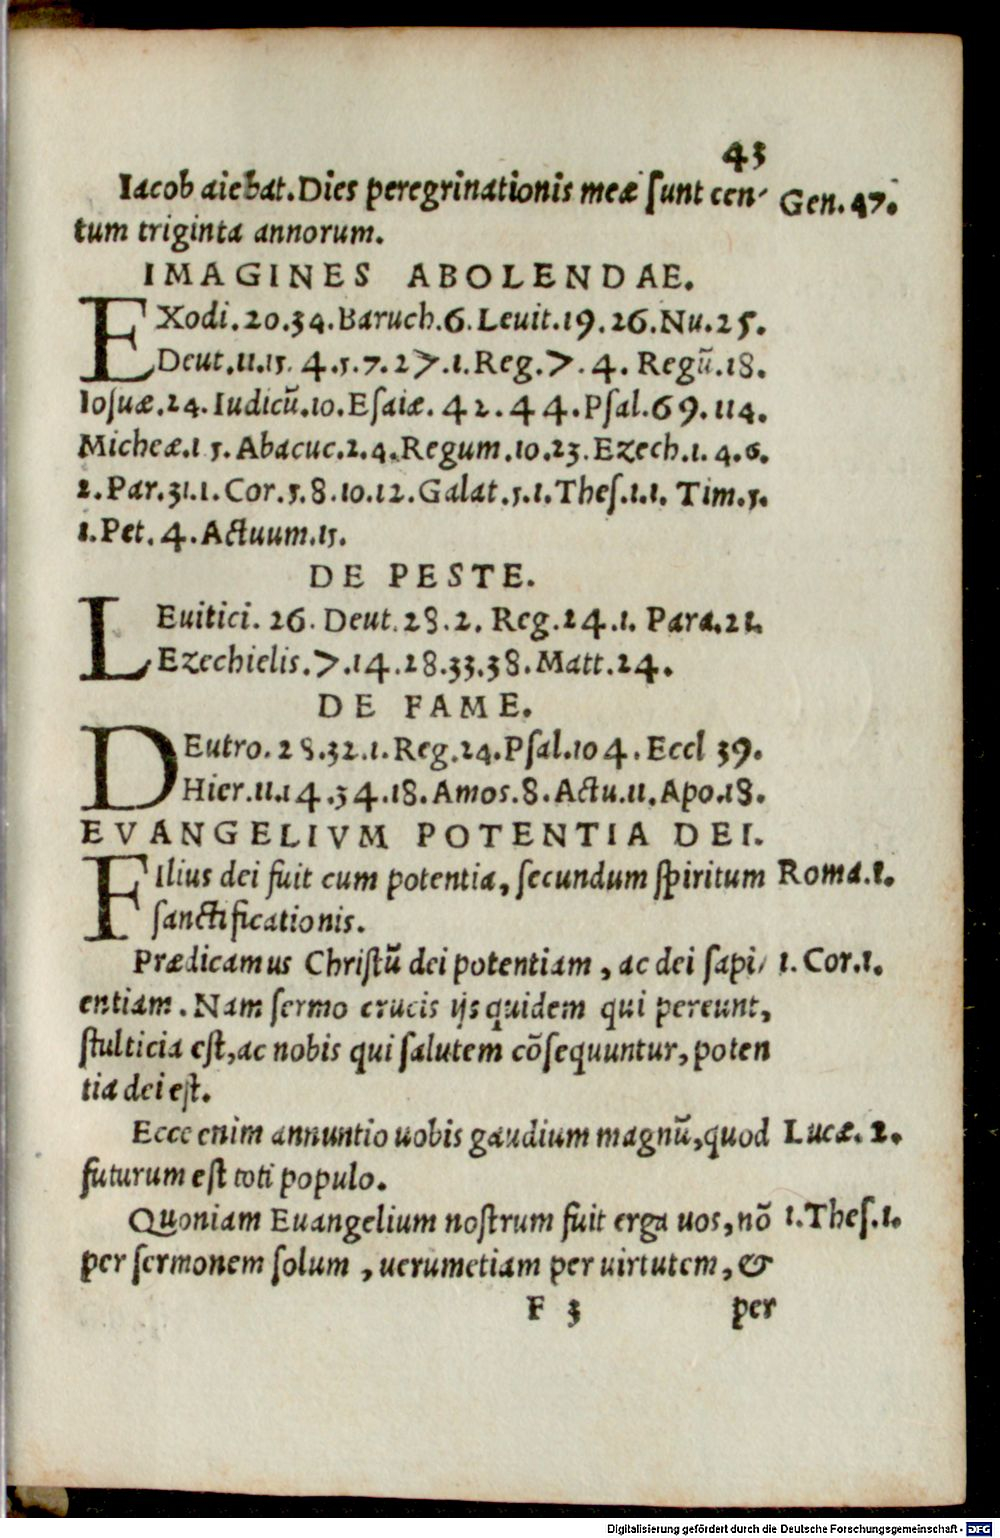 43
Iacob aiebat. Dies peregrinationis meæ sunt cen- Gen. 47.
tum triginta annorum.
IMAGINES ABOLENDAE.
EXodi. 20.34. Baruch. 6. Leuit. 19. 26. Nu. 25.
Deut. 11.15. 4.5.7.27.1. Reg. 7. 4. Regū. 18.
Iosuæ. 24. Iudicū. 10. Esaiæ. 42. 44. Psal. 69. 114.
Micheæ. 1 5. Abacuc. 2. 4. Regum. 10. 23. Ezech. 1. 4. 6.
2. Par. 31. 1. Cor. 5. 8. 10. 12. Galat. 5. 1. Thes. 1. 1. Tim. 5.
1. Pet. 4. Actuum. 15.
DE PESTE.
LEuitici. 26. Deut. 28. 2. Reg. 24. 1. Para. 21.
Ezechielis. 7. 14. 28. 33. 38. Matt. 24.
DE FAME.
DEutro. 28. 32. 1. Reg. 24. Psal. 104. Eccl 39.
Hier. 11. 14. 34. 18. Amos. 8. Actu. 11. Apo. 18.
EVANGELIVM POTENTIA DEI.
FIlius dei fuit cum potentia, secundum spiritum Roma. 1.
sanctificationis.
Prædicamus Christū dei potentiam, ac dei sapi- 1. Cor. 1.
entiam. Nam sermo crucis ijs quidem qui pereunt,
stulticia est, ac nobis qui salutem cōsequuntur, poten
tia dei est.
Ecce enim annuntio uobis gaudium magnū, quod Lucæ. 2.
futurum est toti populo.
Quoniam Euangelium nostrum fuit erga uos, nō 1. Thes. 1.
per sermonem solum, uerumetiam per uirtutem, &
F 3 per
Digitalisierung gefördert durch die Deutsche Forschungsgemeinschaft - DFG